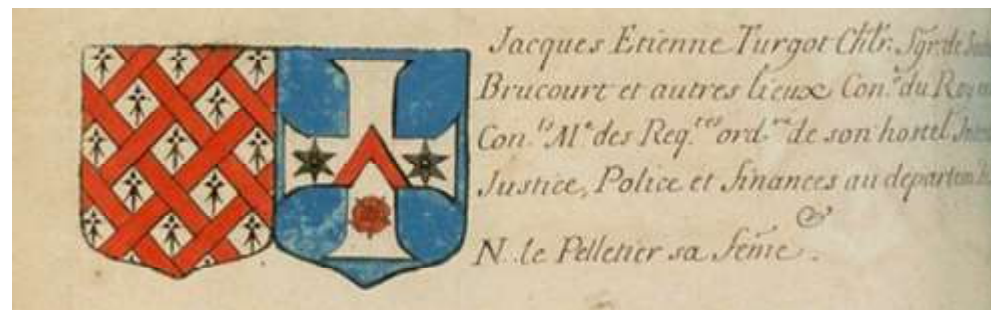 Jacques Etienne Turgot Chlr. Sgr. de
Brucourt et autres lieux Con.er du Roy
Con.ls M.e des Req.tes ord.re de son hostel
Justice, Police et finances au departem
&
N. le Pelletier sa feme.